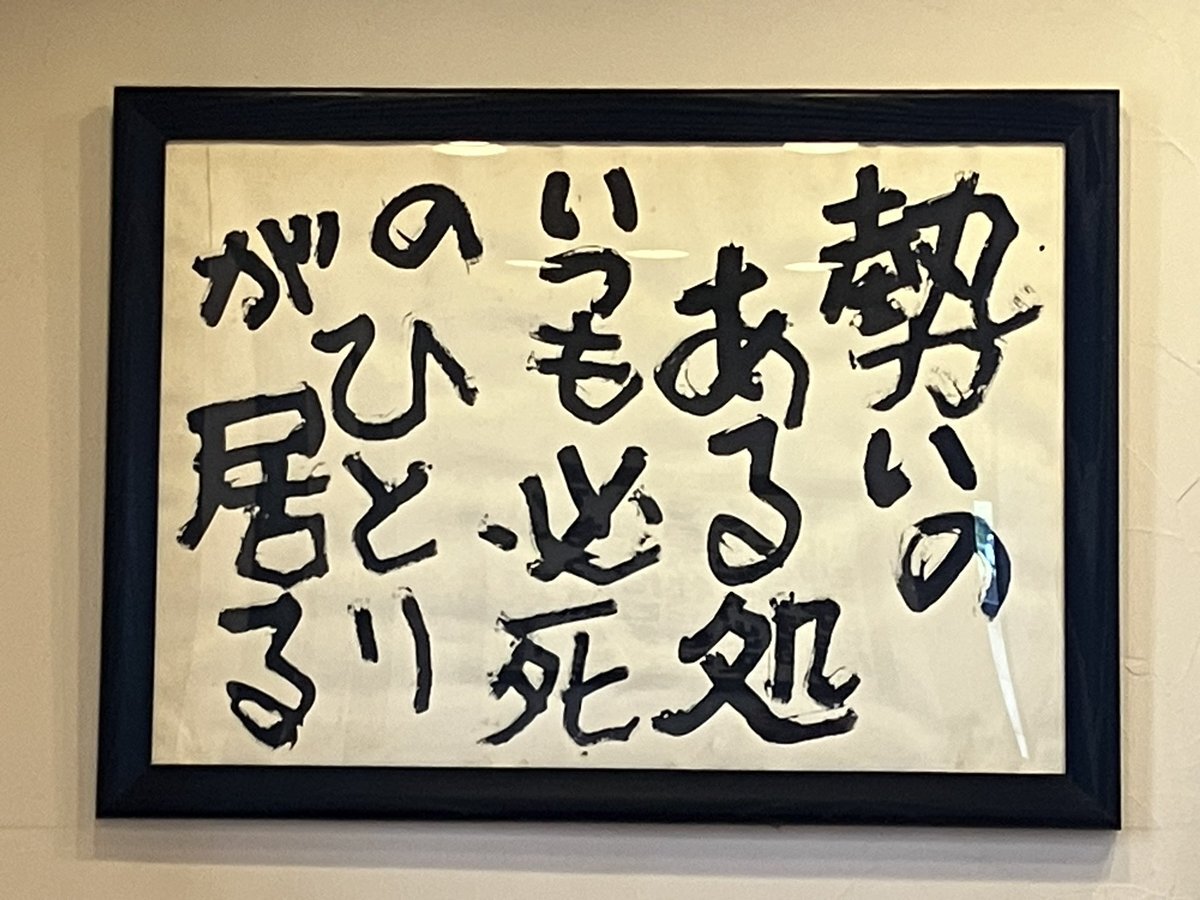 勢いの
ある処
いつも必死
のひとり
が居る